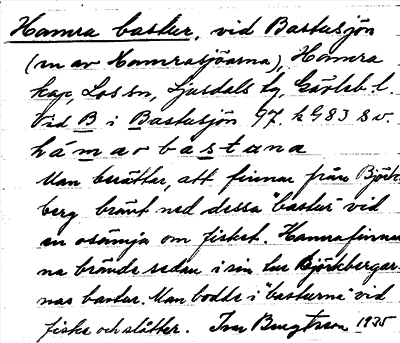 Hamra bastur, vid Bastusjön
(en av Hamrasjöarna), Hamra
kap, Los sn, Ljusdals tg, Gävleb. l.
Vid B i Bastusjön 97. k G 83 S v.
hámrabastuna
Man berättar, att finnar från Björk
berg bränt ned dessa "bastur" vid
en osämja om fisket. Hamrafinnar
na brände sedan i sin tur Björkbergar
nas bastur. Man bodde i "basturna" vid
fiske och slåtter. Ivar Bengtsson 1935